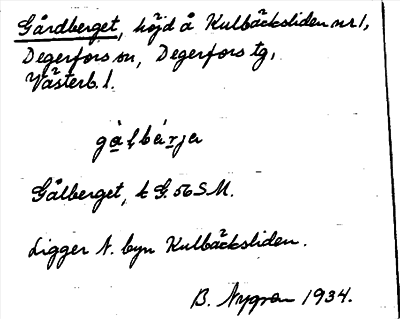 Gårdberget, höjd å Kulbäcksliden nr 1,
Degerfors sn, Degerfors tg,
Västerb. l.
gàlbárja
Gålberget, k G. 56 S M.
Ligger N. byn Kulbäcksliden.
B. Nygren 1934.